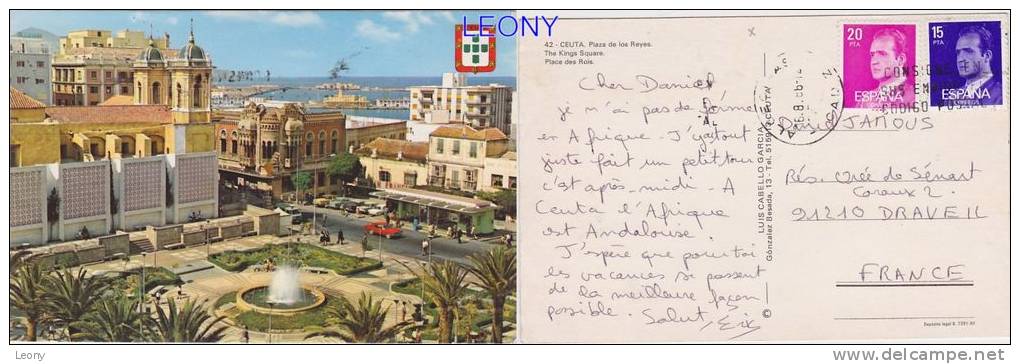 LEONY
42 - CEUTA. Plaza de los Reyes.
The Kings Square.
Place des Rois.
Cher Daniel
je n'ai pas de
en Afrique. J'y ai tout
juste fait un petit tour
c'est après-midi - A
Ceuta l'Afrique
est Andalouse.
J'espère que pour toi
les vacances se passent
de la meilleure façon
possible. Salut, Eric
LUIS CABELLO GARCIA
González Besada, 13 - Tel.
CEUTA
©
20
PTA
ESPAÑA
15
PTA
ESPAÑA
CONSIGNE
SUS
CODIGO
JAMOUS
Rés. Orée de Sénart
2.
91210 DRAVEIL
FRANCE
Leony
LEONY